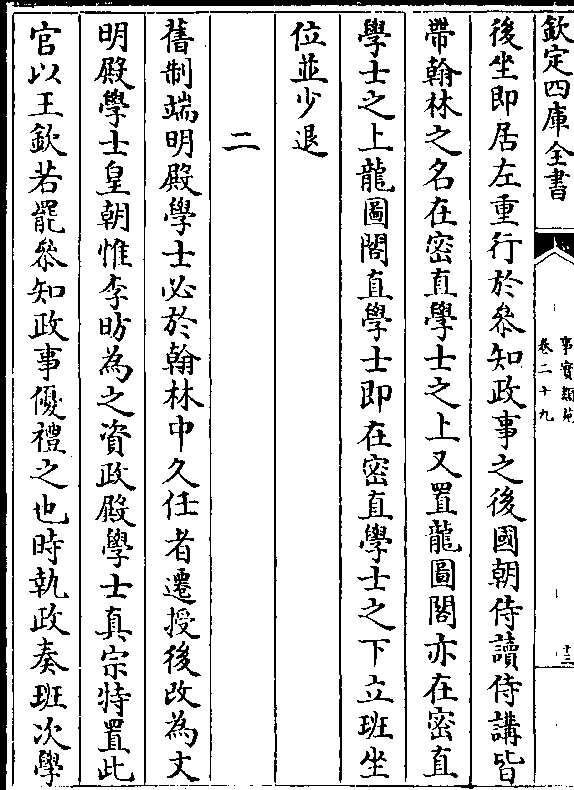 欽定四庫全書
事實類苑
卷二十九
十三
後坐即居左重行於叅知政事之後國朝侍讀侍講皆
帶翰林之名在密直學士之上又置龍圖閣亦在密直
學士之上龍圖閣直學士即在密直學士之下立班坐
位並少退
二
舊制端明殿學士必於翰林中久任者遷授後改為文
明殿學士皇朝惟李昉為之資政殿學士真宗特置此
官以王欽若罷叅知政事優禮之也時執政奏班次學